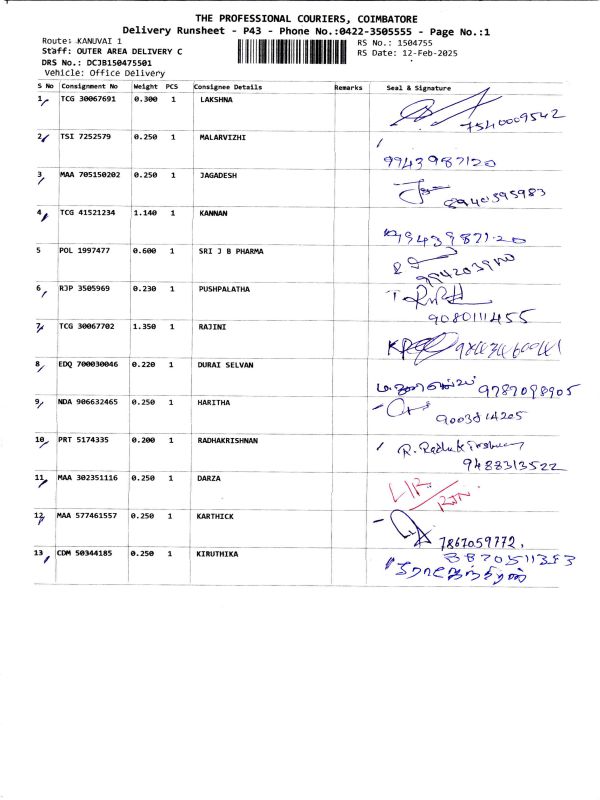 THE PROFESSIONAL COURIERS, COIMBATORE
Delivery Runsheet - P43 - Phone No.:0422-3505555 - Page No.:1
Route: KANUVAI 1 RS No.: 1504755
Staff: OUTER AREA DELIVERY C RS Date: 12-Feb-2025
DRS No.: DCJB150475501
Vehicle: Office Delivery
S No Consignment No Weight PCS Consignee Details Remarks Seal & Signature
1 TCG 30067691 0.300 1 LAKSHNA
7540009542
2 TSI 7252579 0.250 1 MALARVIZHI
9943987120
3 MAA 705150202 0.250 1 JAGADESH
8940395983
4 TCG 41521234 1.140 1 KANNAN
9943987120
5 POL 1997477 0.600 1 SRI J B PHARMA
6 RJP 3505969 0.230 1 PUSHPALATHA
9080111455
7 TCG 30067702 1.350 1 RAJINI
8 EDQ 700030046 0.220 1 DURAI SELVAN
9787098905
9 NDA 906632465 0.250 1 HARITHA
9003814205
10 PRT 5174335 0.200 1 RADHAKRISHNAN
R. Radhakrishnan
9488313522
11 MAA 302351116 0.250 1 DARZA
RTN
12 MAA 577461557 0.250 1 KARTHICK
7867059772.
13 CDM 50344185 0.250 1 KIRUTHIKA
8870511353